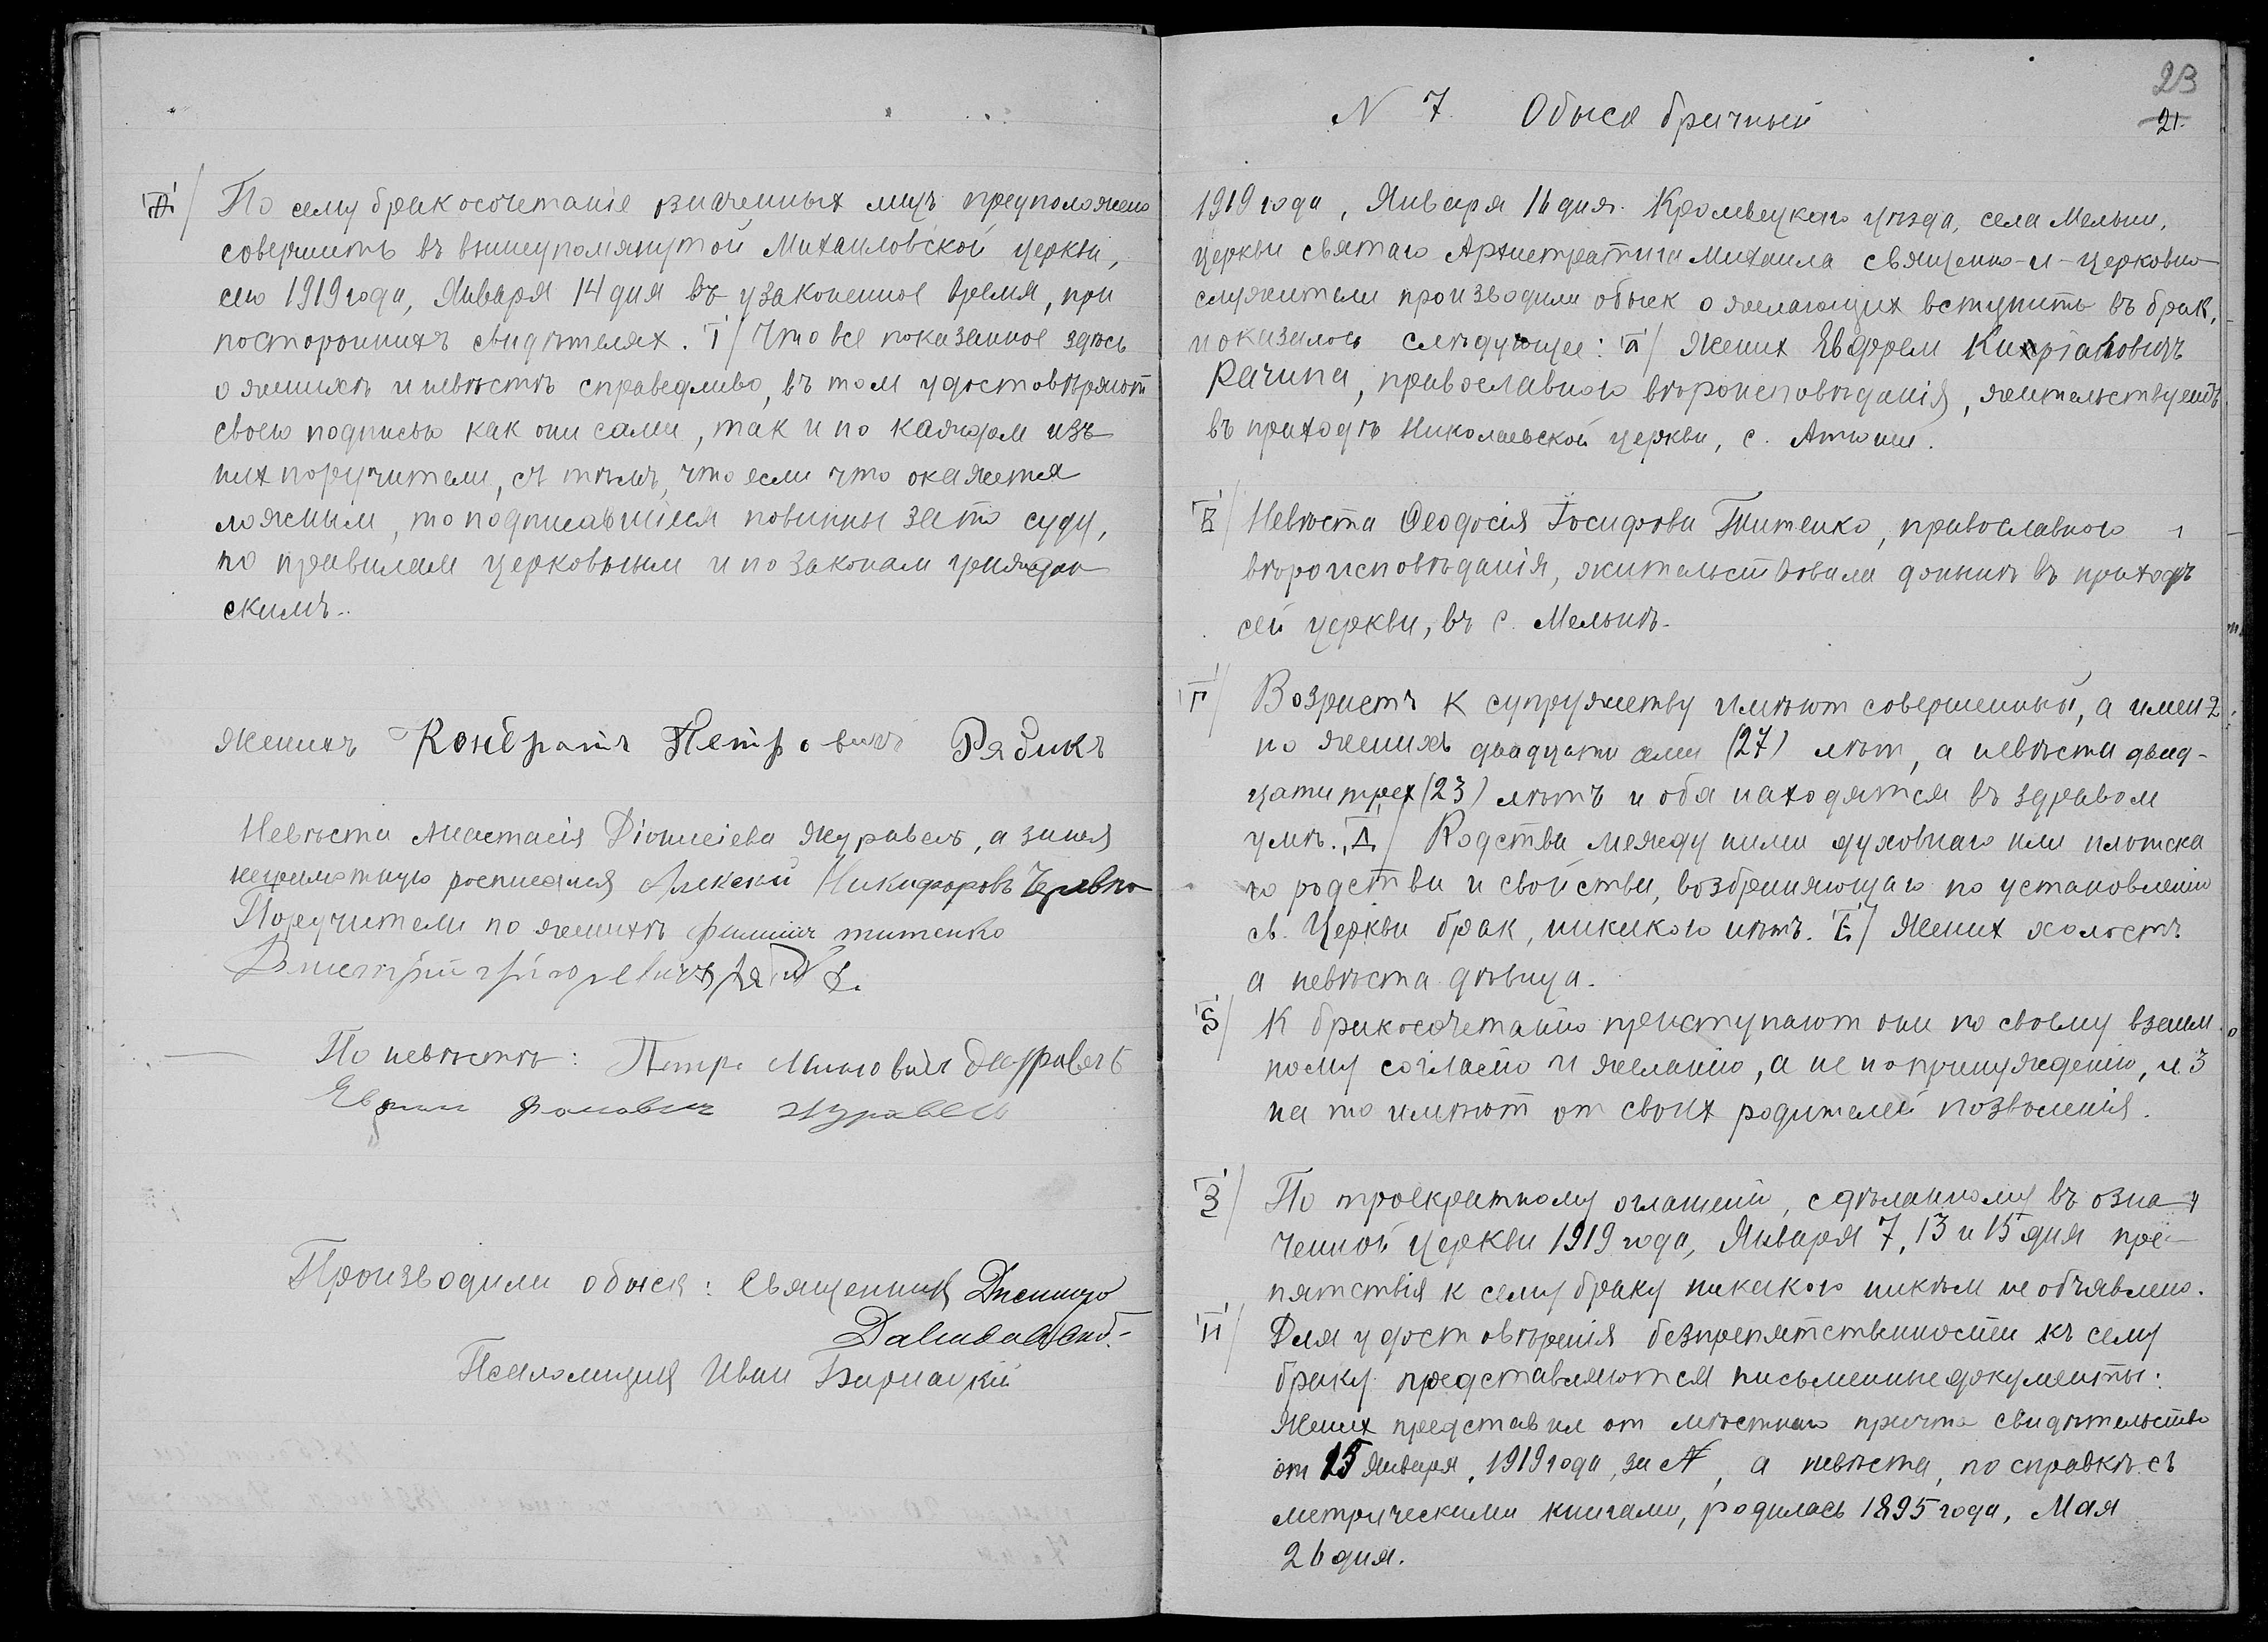 Ѳ/ По сему бракосочетаніе означенных лицъ предположено
совершить въ вышеупомянутой Михаиловской церкви,
сего 1919 года, Января 14 дня въ узаконенное время, при
посторонних свидѣтелях. І/ Что все показанное здѣсь
о женихѣ и невѣстѣ справедливо, въ том удостовѣряют
своею подписью как они сами, так и по каждом изъ
них поручители, съ тѣмъ, что если что окажется
ложным, то подписавшіеся повинны за то суду,
по правилам церковным и по законам граждан
скимъ.
женихъ Кондратъ Петровичъ Рябикъ
Невѣста Анастасія Діонисіева Журавель, а за нея
неграмотную росписался Алексей Никифоровъ
Поручители по женихѣ Филиппъ титенко
Дмитрий григоревичъ
По невѣстѣ: Петръ Журавель
журавель
Производили обыск: Священник Дмитро
Псаломщик Иван Варнацкій
23
21.
N 7. Обыск брачный
1919 года, Января 16 дня. Кролевецкаго уѣзда, села Мельни,
церкви святаго Архистратига Михаила священно-и-церковно
служители производили обыск о желающих вступить въ брак,
и оказалось слѣдующее: А/ Жених Евфрем Кипріановичъ
Рачипа, православного вѣроисповѣданія, жительствуетъ
въ приходѣ Николаевской церкви, с. Атюши.
В/ Невѣста Ѳеодосія Іосифова Титенко, православного
вѣроисповѣданія, жительствовала донынѣ въ приходѣ
сей церкви, въ с. Мельнѣ.
Г/ Возрастъ к супружеству имѣют совершенный, а имен
но жених двадцати семи (27) лѣт, а невѣста двад-
цати трех (23) лѣтъ и оба находятся въ здравом
умѣ. Д/ Родства между ними духовнаго или плотска
го родства и свойства, возбраняющаго по установленію
св. Церкви брак, никакого нѣтъ. Е/ Жених холостъ
а невѣста дѣвица.
Ѕ/ К бракосочетанію приступают они по своему взаим
ному согласію и желанію, а не по принужденію, и
на то имѣют от своих родителей позволенія.
З/ По троекратному оглашенію, сдѣланному въ озна
ченной церкви 1919 года, Января 7, 13 и 15 дня пре-
пятствія к сему браку никакого никѣм не объявлено.
И/ Для удостовѣренія безпрепятственности къ сему
браку представляются письменные документы:
Жених представил от мѣстнаго причта свидѣтельство
от 15 Января, 1919 года, за N, а невѣста, по справкѣ съ
метрическими книгами, родилась 1895 года, Мая
26 дня.